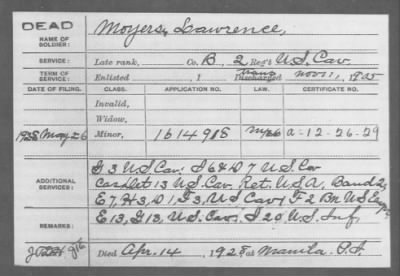 DEAD
NAME OF SOLDIER: Moyers, Lawrence,
SERVICE: Late rank, Co. B, 2 Reg't U.S. Cav.
TERM OF SERVICE: Enlisted , 1 Discharged trans Nov 11,
DATE OF FILING. CLASS. APPLICATION NO. LAW. CERTIFICATE NO.
Invalid,
Widow,
1928 May 26 Minor, 1614918 a=12-26-29
ADDITIONAL SERVICES: G 3 U.S. Cav. I 6 & D 7 U.S. Cav
13 U.S. Cav. Ret. U.S.A. Band 2,
E 7, H 3, D 1, F 3, U.S. Cav; F 2 Bn U.S. Engrs
E 13, G 13, U.S. Cav; I 20 U.S. Inf.
REMARKS:
Died Apr. 14, 1928 at Manila, P.I.